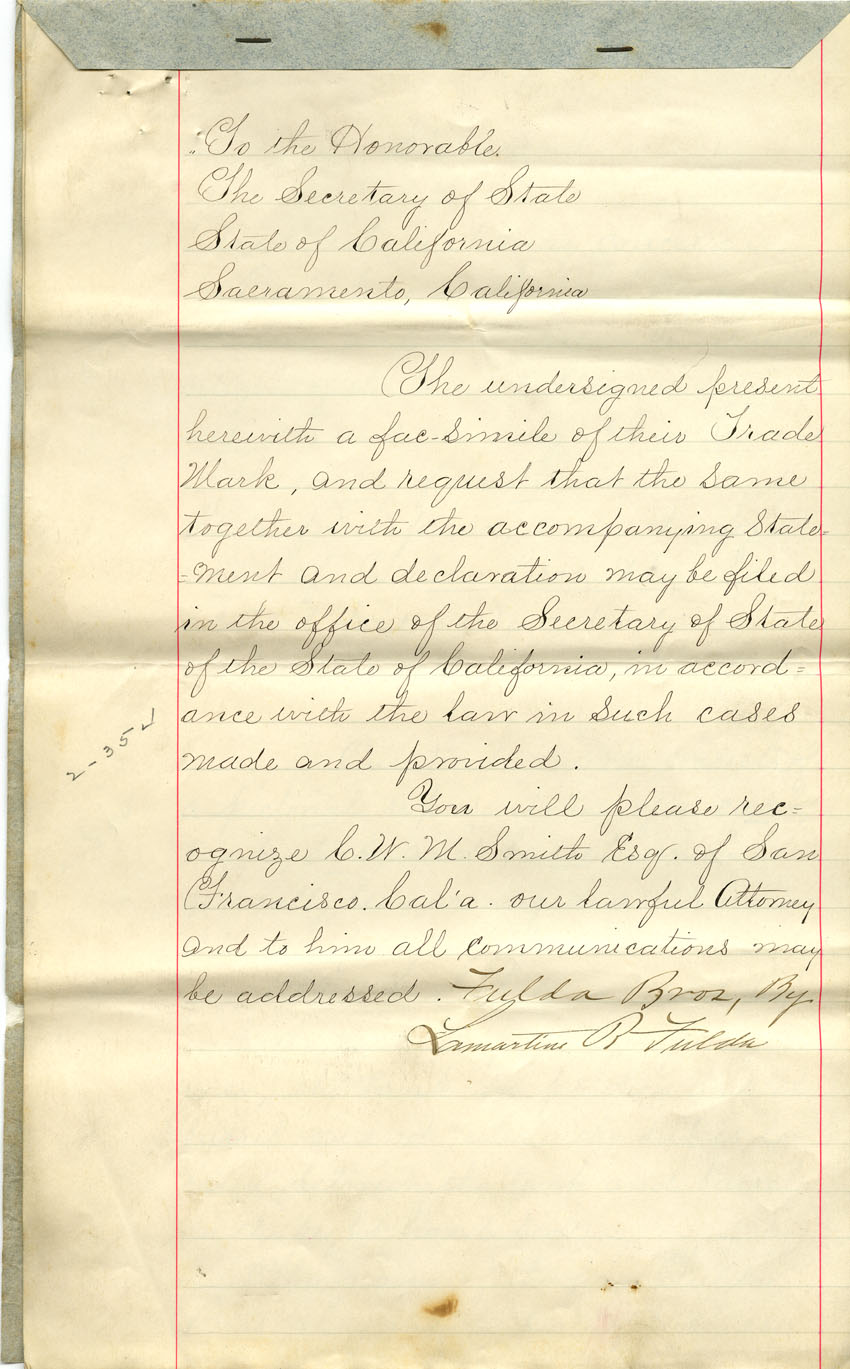 To the Honorable.
The Secretary of State
State of California
Sacramento, California
The undersigned present
herewith a fac-simile of their Trade
Mark, and request that the same
together with the accompanying State=
=ment and declaration may be filed
in the office of the Secretary of State
of the State of California, in accord=
ance with the law in such cases
made and provided.
2-35✓
You will please rec=
ognize C. W. M. Smith Esq. of San
Francisco. Cal'a. our lawful Attorney
and to him all communications may
be addressed. Fulda Bros, By
Lamartine R Fulda